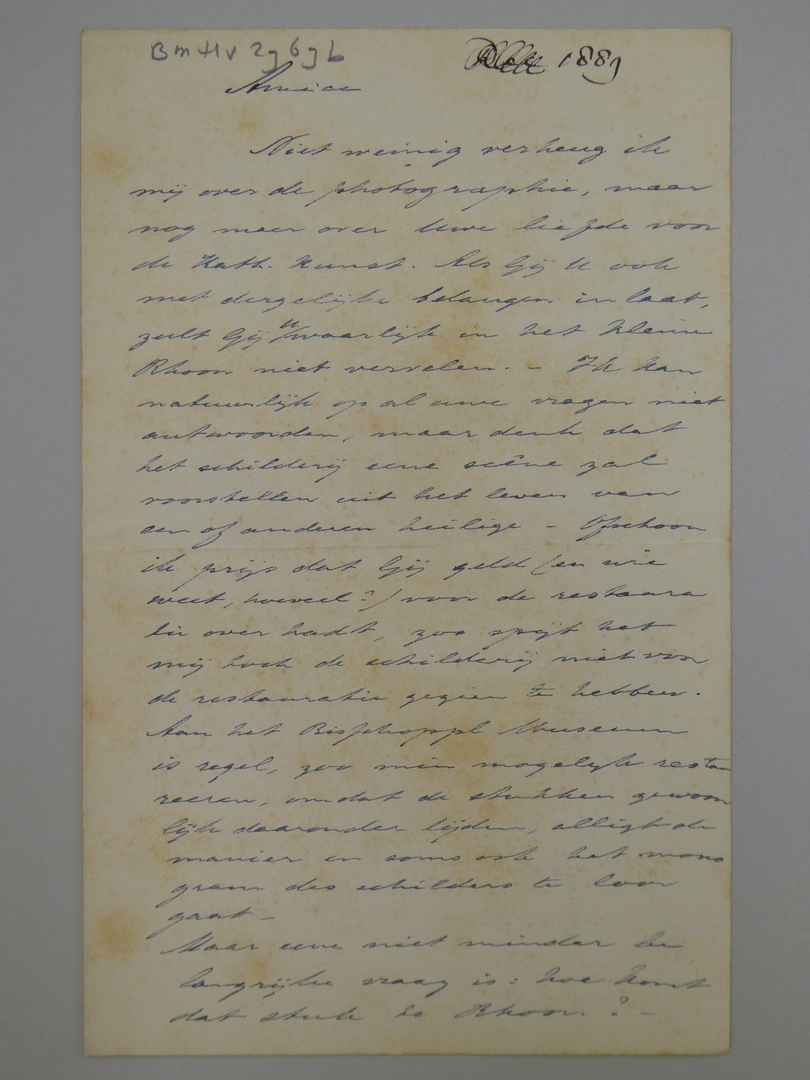 BmHv 29696
1889
Amice
Niet weinig verheug ik
mij over de photographie, maar
nog meer over Uwe liefde voor
de Kath. Kunst. Als Gij U ook
met dergelijke belangen inlaat,
zult Gij U waarlijk in het kleine
Rhoon niet vervelen. – Ik kan
natuurlijk op al uwe vragen niet
antwoorden, maar denk dat
het schilderij eene scène zal
voorstellen uit het leven van
een of anderen heilige – Ofschoon
ik prijs dat Gij geld (en wie
weet, hoeveel?) voor de restaura
tie over hadt, zoo spijt het
mij toch de schilderij niet voor
de restauratie gezien te hebben.
Aan het Bisschoppl Museum
is regel, zoo min mogelijk restau
reeren, omdat de stukken gewoon
lijk daaronder lijden, alligt de
manier en soms ook het mono
gram des schilders te loor
gaat –
Maar eene niet minder be
langrijke vraag is: hoe komt
dat stuk te Rhoon? –